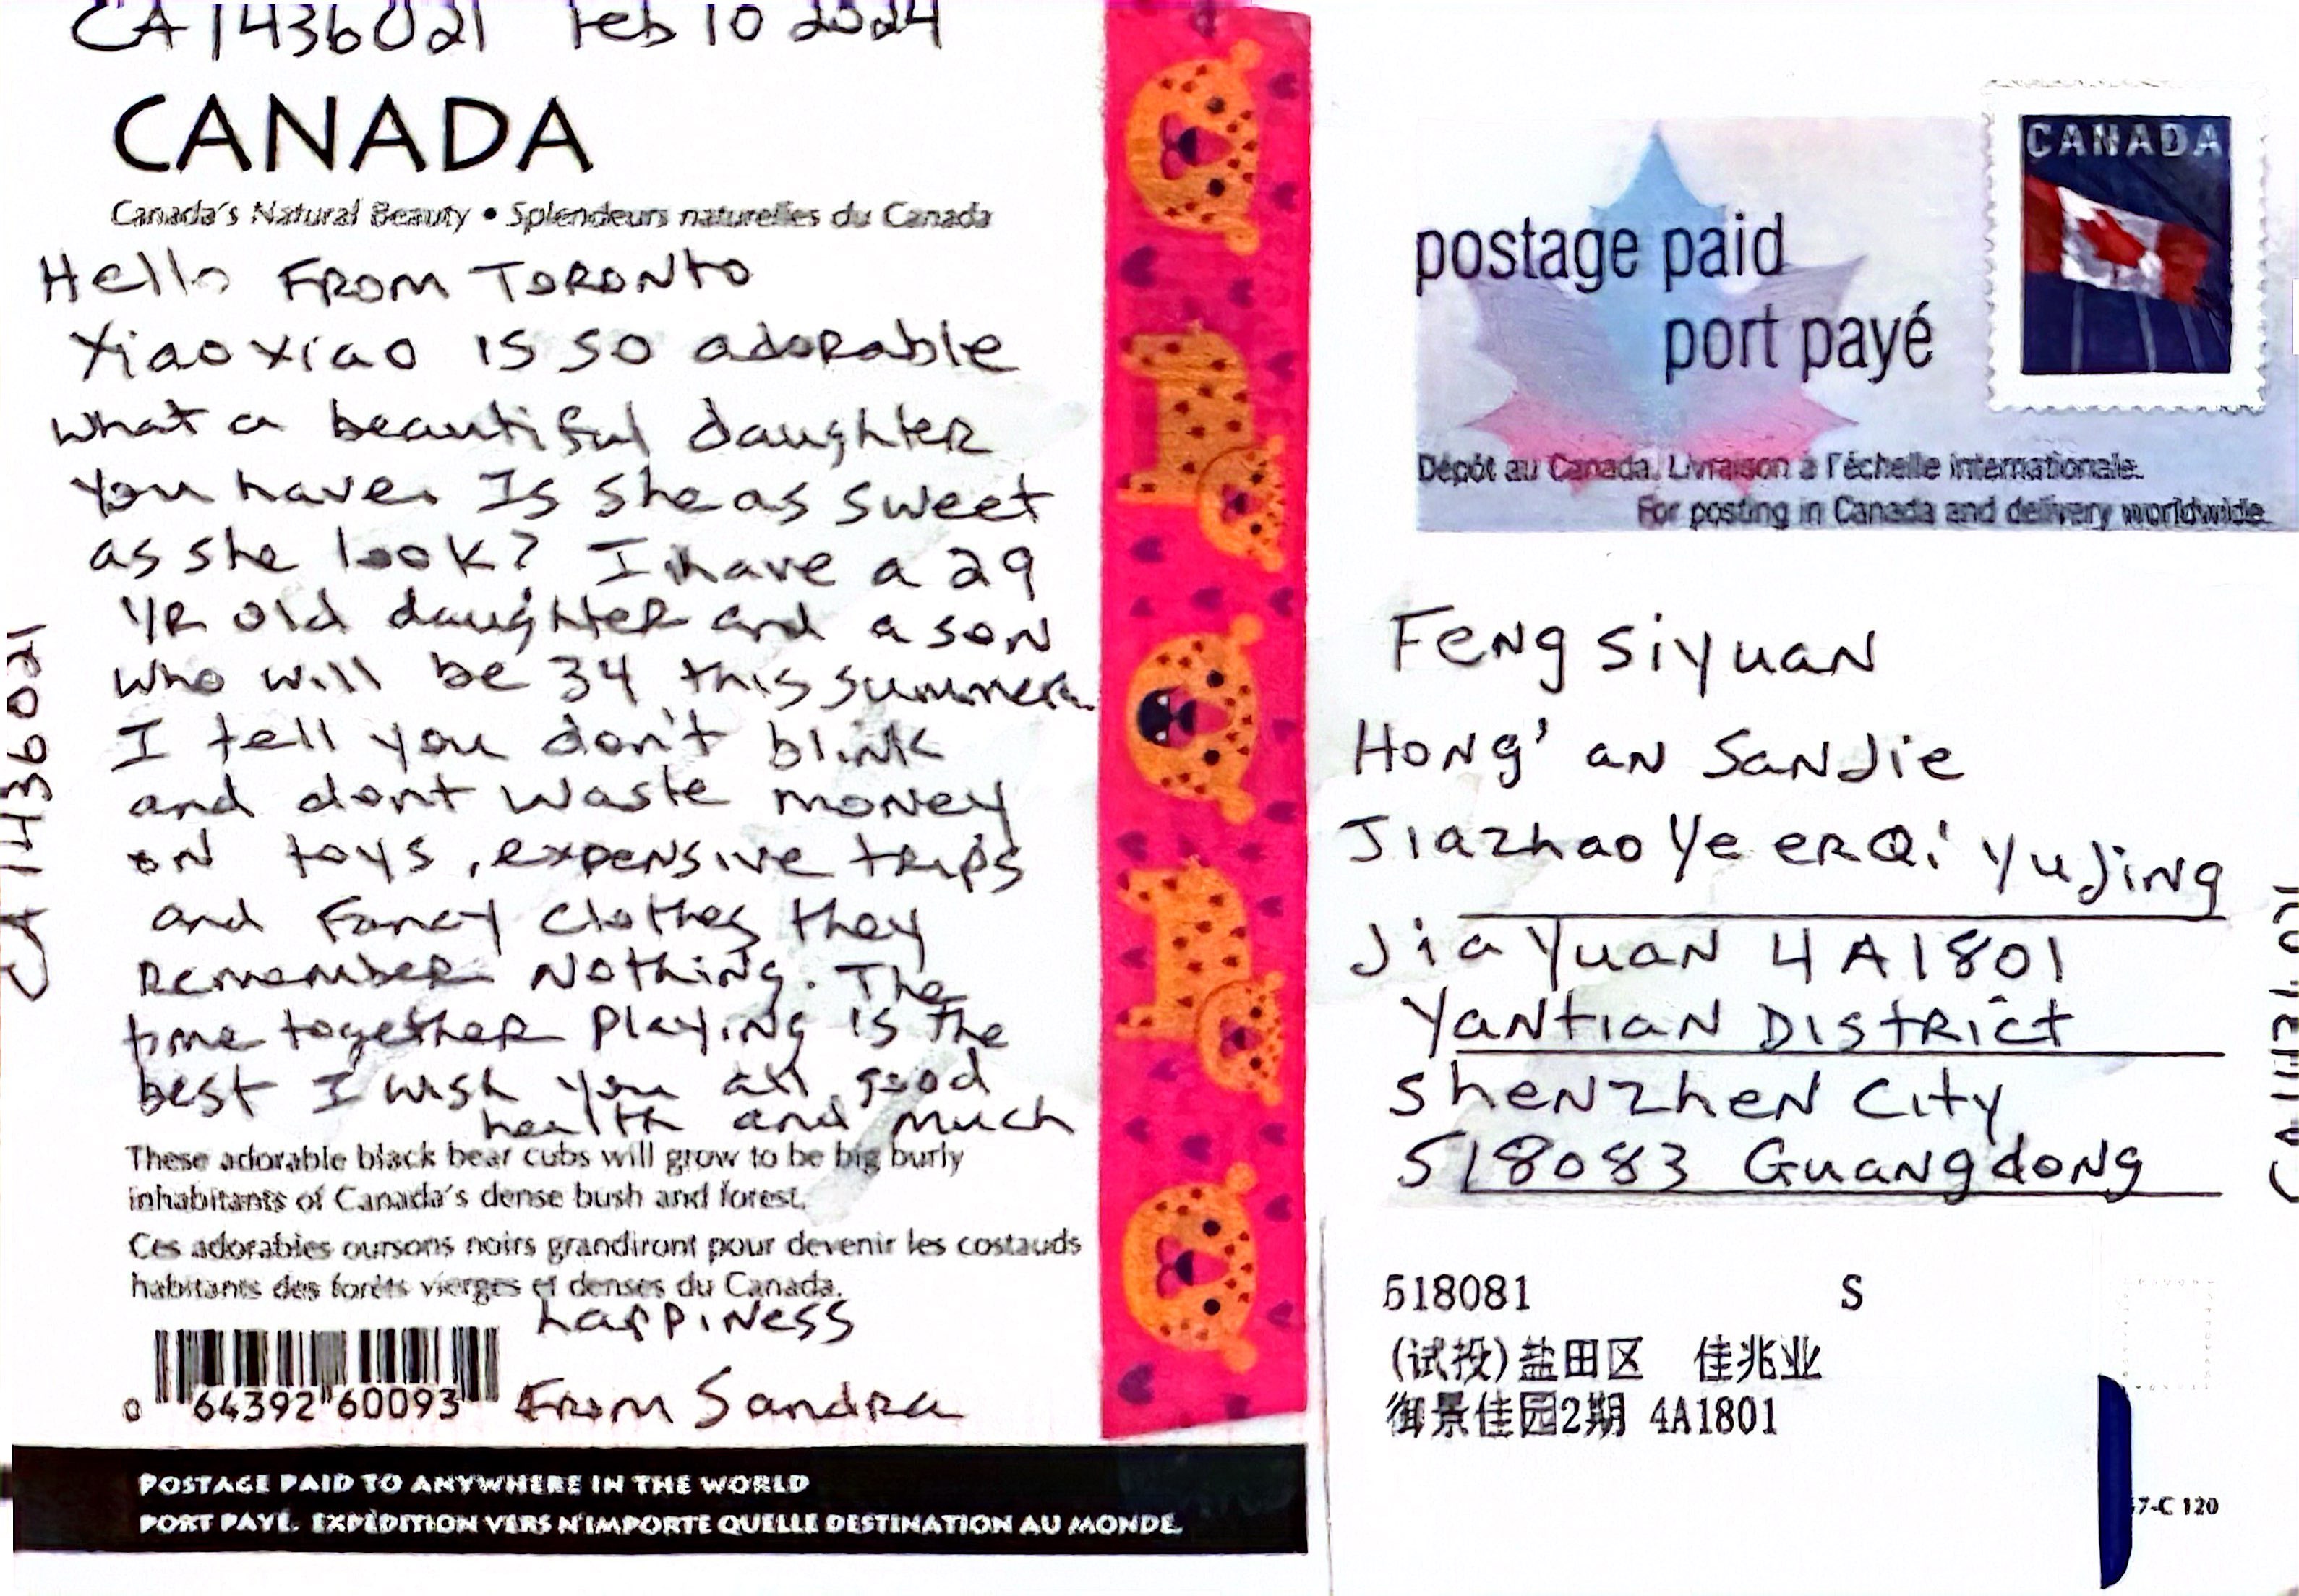 CA 1436021 Feb 10 2024
CANADA
Canada's Natural Beauty • Splendeurs naturelles du Canada
Hello From Toronto
Xiaoxiao is so adorable
what a beautiful daughter
you have. Is she as sweet
as she look? I have a 29
yr old daughter and a son
who will be 34 this summer.
I tell you don't blink
and dont waste money
on toys, expensive trips
and Fancy clothes they
Remember Nothing. The
time together Playing is the
best I wish you all good
health and much
These adorable black bear cubs will grow to be big burly
inhabitants of Canada's dense bush and forest.
Ces adorables oursons noirs grandiront pour devenir les costauds
habitants des forêts vierges et denses du Canada.
happiness
From Sandra
0 64392 60093
POSTAGE PAID TO ANYWHERE IN THE WORLD
PORT PAYÉ. EXPÉDITION VERS N'IMPORTE QUELLE DESTINATION AU MONDE.
CA 1436021
CANADA
postage paid
port payé
Dépôt au Canada. Livraison à l'échelle internationale.
For posting in Canada and delivery worldwide.
Feng Siyuan
Hong'an Sanjie
Jiazhao Ye er Qi Yujing
Jia Yuan 4A1801
Yantian District
Shenzhen City
518083 Guangdong
518081 S
(试投)盐田区 佳兆业
御景佳园2期 4A1801
7-C 120